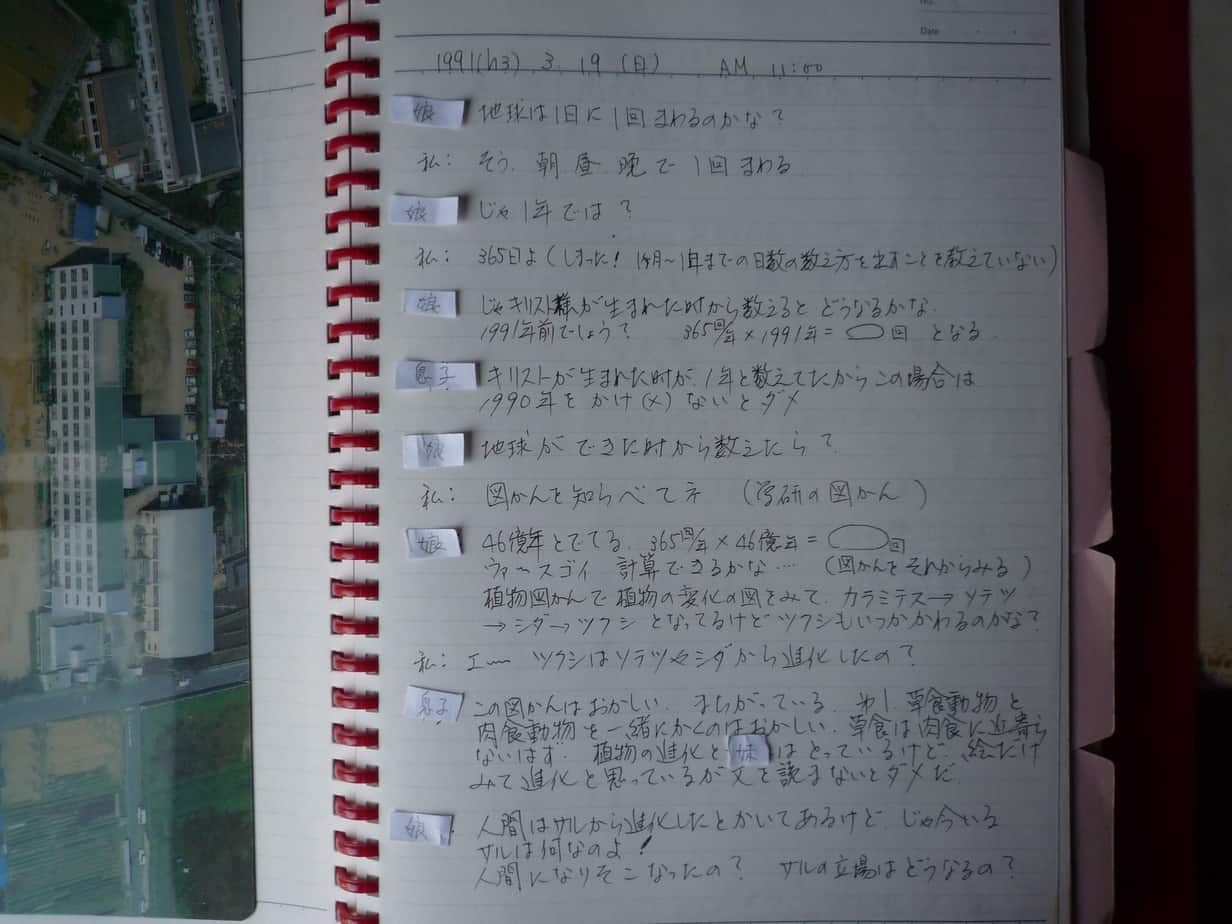 No.
Date
1991(h3) 3. 19 (日) AM 11:00
娘 地球は1日に1回まわるのかな?
私: そう、朝昼晩で1回まわる
娘 じゃ1年では?
私: 365日よ(しまった! 1ヶ月〜1年までの日数の数え方を出すことを教えていない)
娘 じゃキリスト様が生まれた時から数えるとどうなるかな.
1991年前でしょう? 365回/年×1991年=◯回 となる.
息子 キリストが生まれた時が、1年と数えてたからこの場合は
1990年をかけ(×)ないとダメ
娘 地球ができた時から数えたら?
私: 図かんを知らべてネ (学研の図かん)
娘 46億年とでてる. 365回/年×46億年=◯回
ヴァースゴイ 計算できるかな… (図かんをそれからみる)
植物図かんで植物の変化の図をみて. カラミテス→ソテツ
→シダ→ツクシ となってるけどツクシもいつかかわるのかな?
私: エー ツクシはソテツやシダから進化したの?
息子 この図かんはおかしい. まちがっている. 草食動物と
肉食動物を一緒にかくのはおかしい. 草食は肉食に近寄ら
ないはず. 植物の進化と妹はとっているけど、絵だけ
みて進化と思っているが文を読まないとダメだ
娘 人間はサルから進化したとかいてあるけど、じゃ今いる
サルは何なのよ!
人間になりそこなったの? サルの立場はどうなるの?